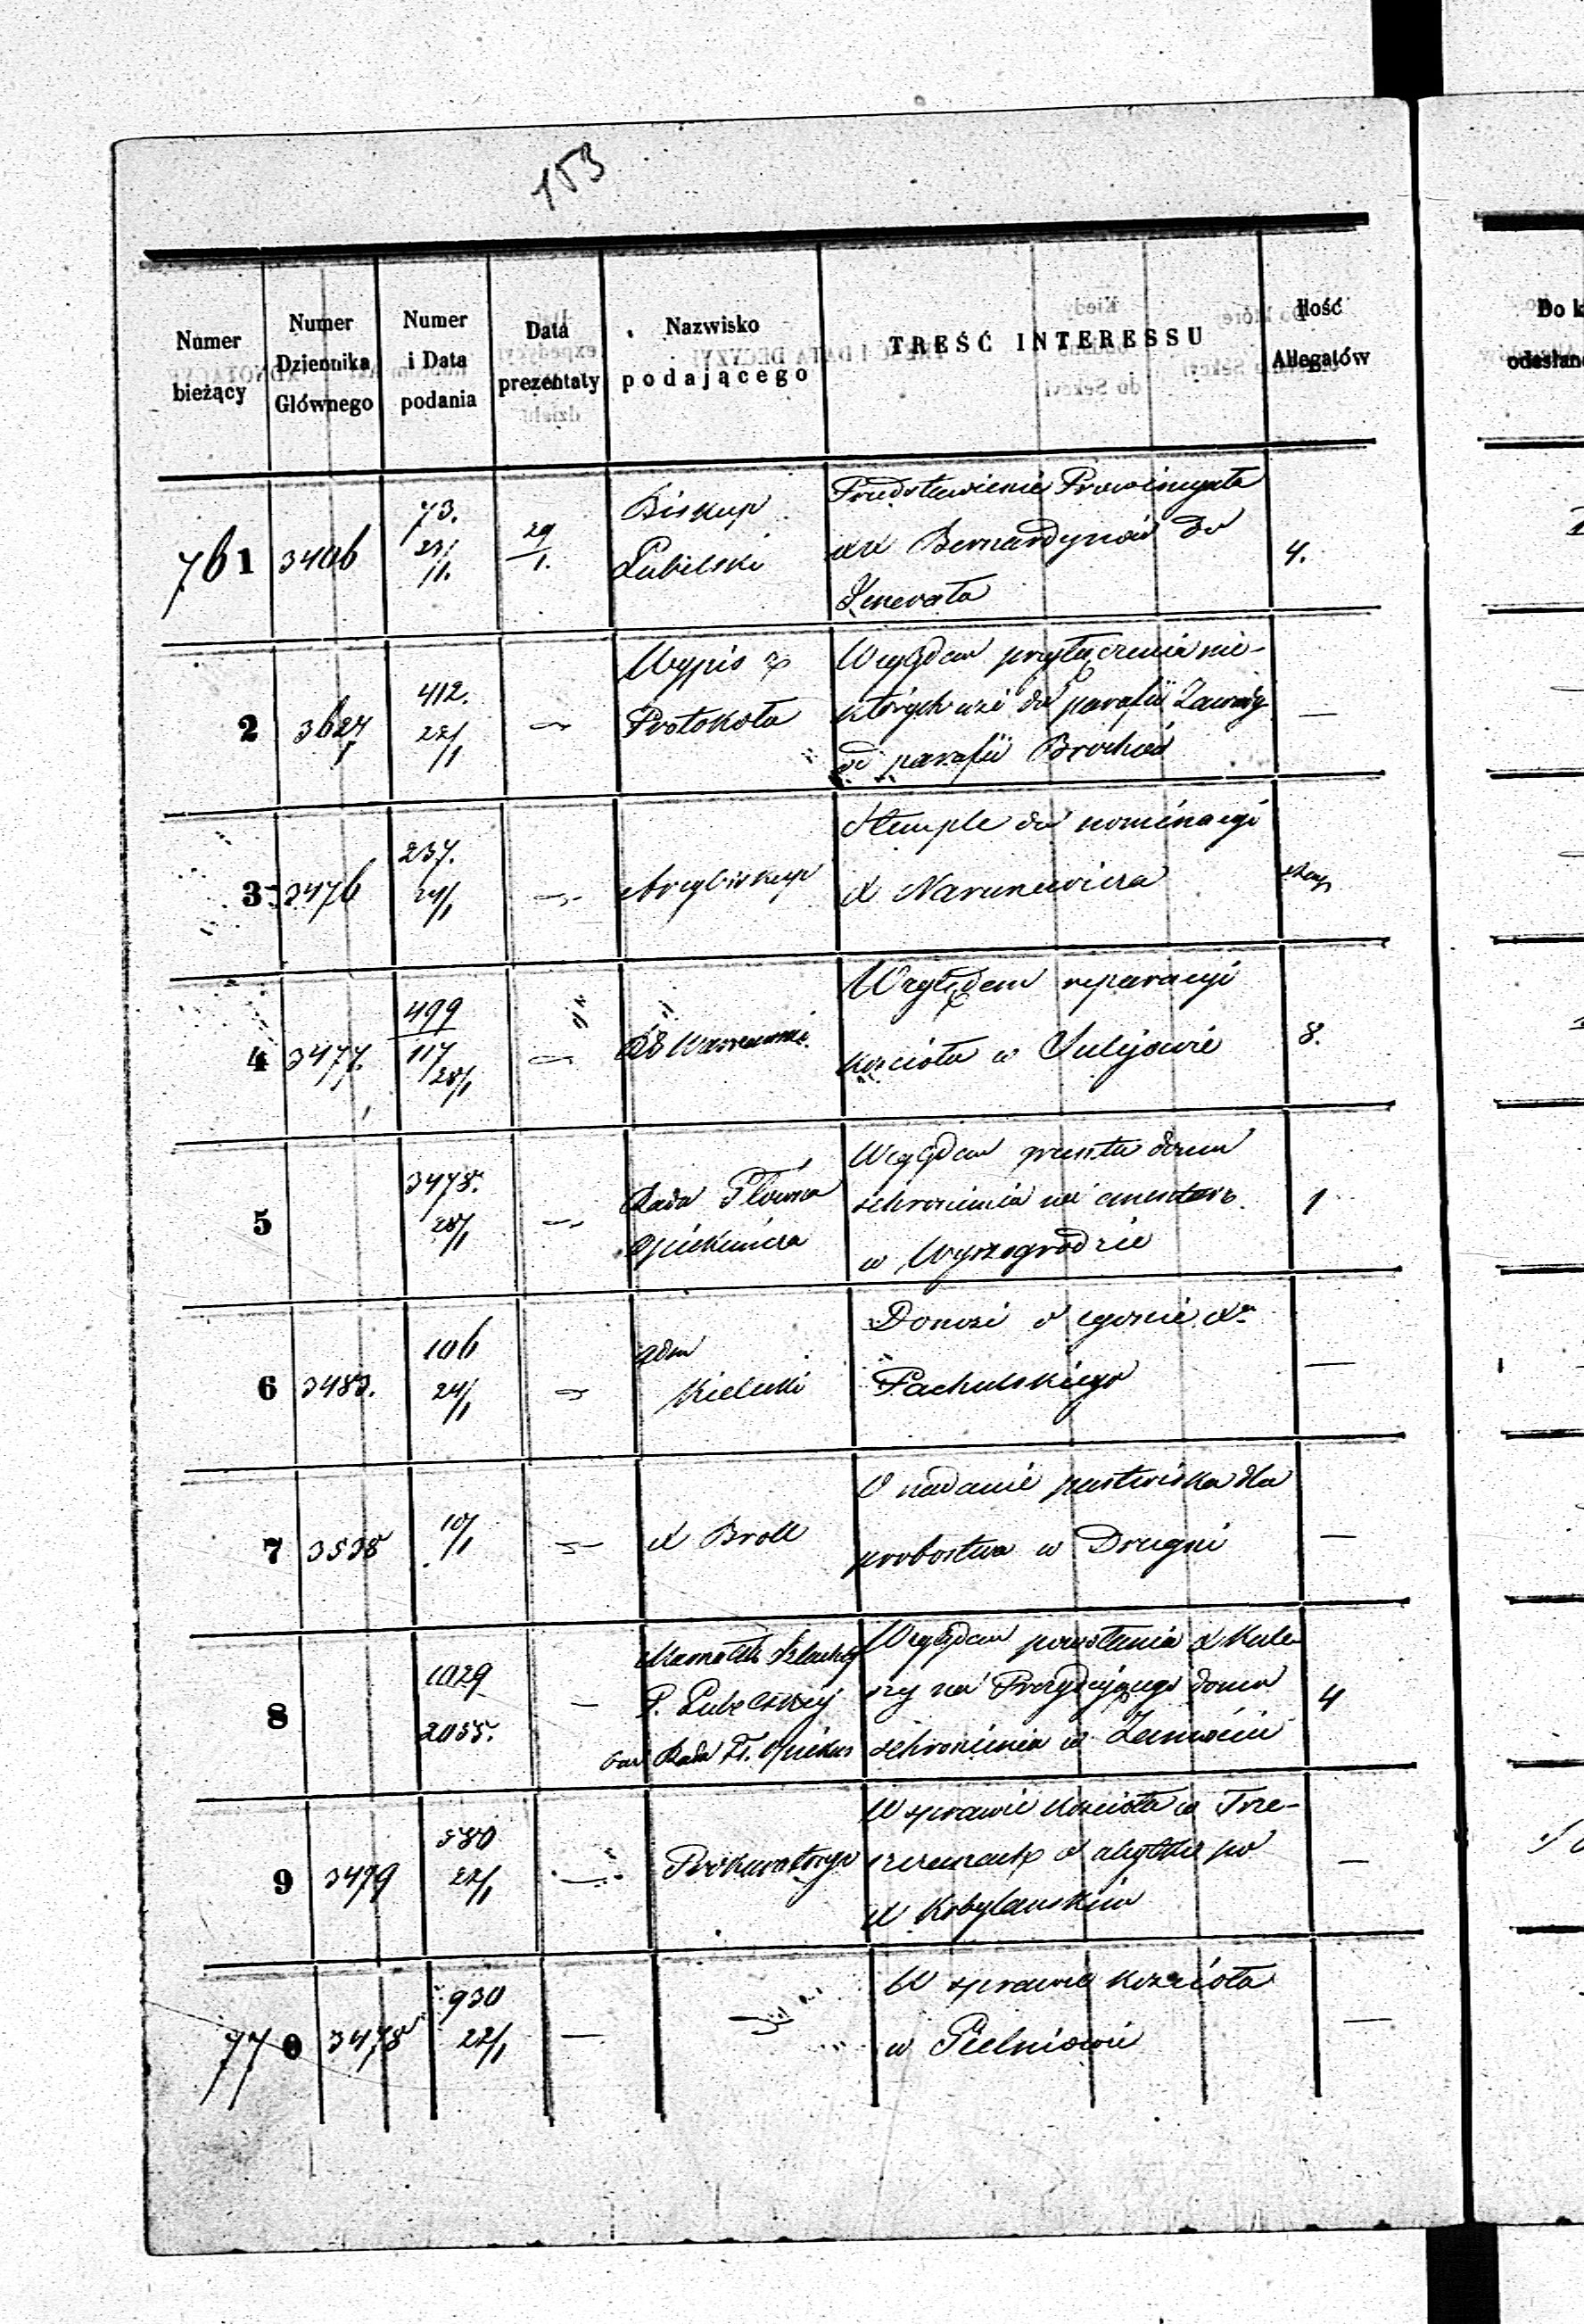 153
Numer bieżący
Numer Dziennika Głównego
Numer i Data podania
Data prezentaty
Nazwisko podającego
TREŚĆ INTERESSU
Ilość Allegatów
Do k
odesłano
761 3406 73. 29/1. Biskup Lubelski
Przedstawienie Prowincyała
XX Bernardynów do
Generała
4.
2 3627 412. 22/1 Wypis z Protokołu
Względem przyłączenia nie-
których wsi do parafii
od parafii Brochów
—
3 3476 237. 24/1 Arcybiskup
Stemple do nominacyi
X Narunowicza
4 3477. 499 117 28/1 Warszawski
Względem reparacyi
kościoła w Julijowie
8.
5 3478. 28/1 Rada Główna Opiekuńcza
Względem gruntu domu
schronienia na cmentarz
w Wyszogrodzie
1
6 3483. 106 24/1 Adm Kielecki
Donosi o zgonie Xa
Pachulskiego
—
7 3538 10/1 X Broll
O nadanie pastwiska dla
probostwa w Drugni
—
8 1029 2055. Marszałek Szlachty
G. Lubelskiej
Rada Gł. Opiekuń
Względem powołania X Kule-
szy na Prezydującego domu
schronienia w Zamościu
4
9 3479 580 22/1 Prokuratorya
W sprawie kościoła w Trze-
szczanach o zbytki po
X Kobylańskim
—
770 3478 930 22/1 —
W sprawie kościoła
w Gielniowie
—